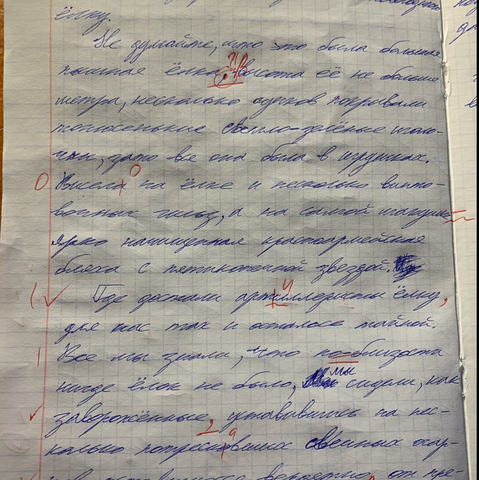 ёлку.
Не думайте, что это была большая
пышная ёлка. Высота её не больше
метра, несколько сучков покрывали
тонюсенькие светло-зелёные иголо-
чки, зато вся она была в игрушках.
Висела на ёлке и несколько винто-
вочных гильз, а на самой макушке
ярко начищенная красноармейская
бляха с пятиконечной звездой.
Где достали артиллеристы ёлку,
для нас так и осталось тайной.
Все мы знали, что по-близости
нигде ёлок не было, мы сидели, как
заворожённые, уставившись на нес-
колько потрескивших свечных огар-
от пре-